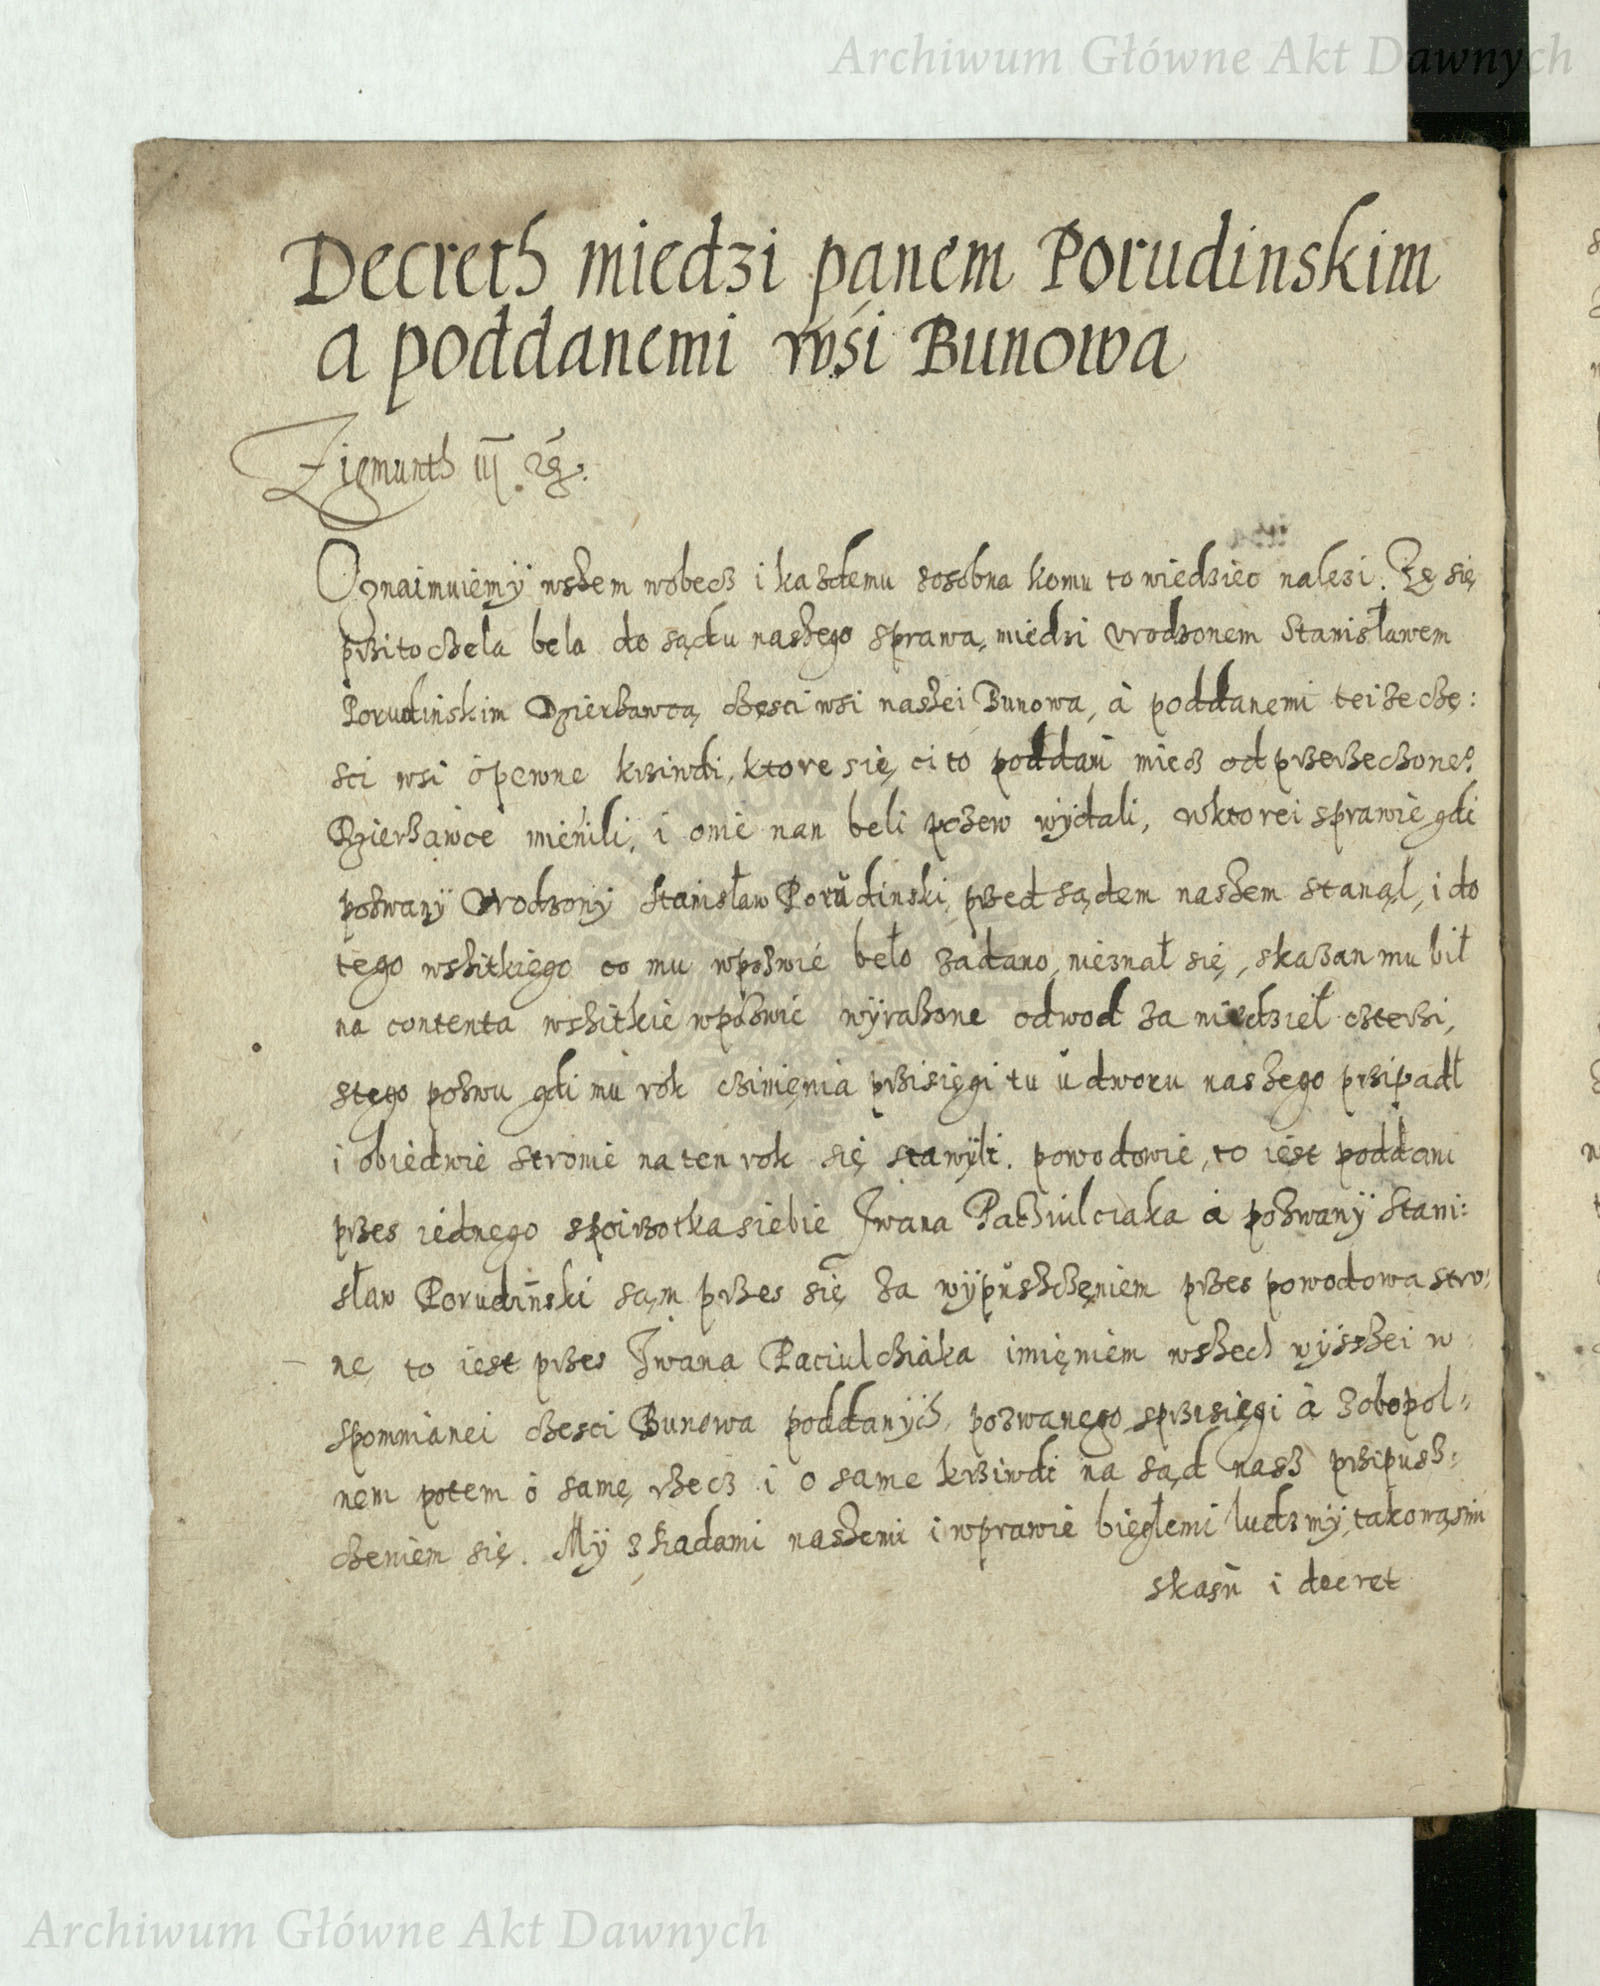 Archiwum Główne Akt Dawnych
Decreth miedzi panem Porudinskim
a poddanemi wśi Bunowa
Zigmunth III
Oznaimuiemÿ wszem wobecz i kazdemu zosobna komu to wiedziec nalezi. Zę się
przitoczela bela do sądu naszego sprawa, miedzi vrodzonem Stanisławem
Porudińskim Dzierzawcą częsci wsi naszei Bunowa, à poddanemi teize czę:
sci wsi ò pewne krziwdi, ktore się ci to poddani miecz od przerzeczone°
Dzierzawce mienili, i onie nan beli pozew wÿdali, wktorei sprawie gdi
pozwanÿ Vrodzony Stanisław Porŭdinski, przed sądem naszem stanął, i do
tego wszitkiego co mu wpozwie beło zadano, nieznał się, skazan mu bił
na contenta wszitkie wpozwie wÿrazone odwod za niedziel czterzi,
stego pozwu gdi mu rok czinięnia przisięgi tu ŭ dworu naszego przipadł
i obiedwie stronie na ten rok się stawÿli. powodowie, to iest poddani
przes iednego spoirzotka siebie Jwana Pacziulciaka à pozwanÿ Stani:
sław Porudiński sąm przes się za wÿpŭszczęniem przes powodowa stro:
nę to iest przes Jwana Paciulchiaka imięniem wszech wÿsszei w
spomnianei czesci Bunowa poddanÿch pozwanego sprzisięgi à zobopol:
nem potem ò samę rzecz i o same krziwdi na sąd nasz przipusz:
czeniem się. Mÿ z Radami naszemi i wprawie biegłemi ludzmÿ, takowąśmi
skasń i decret
Archiwum Główne Akt Dawnych